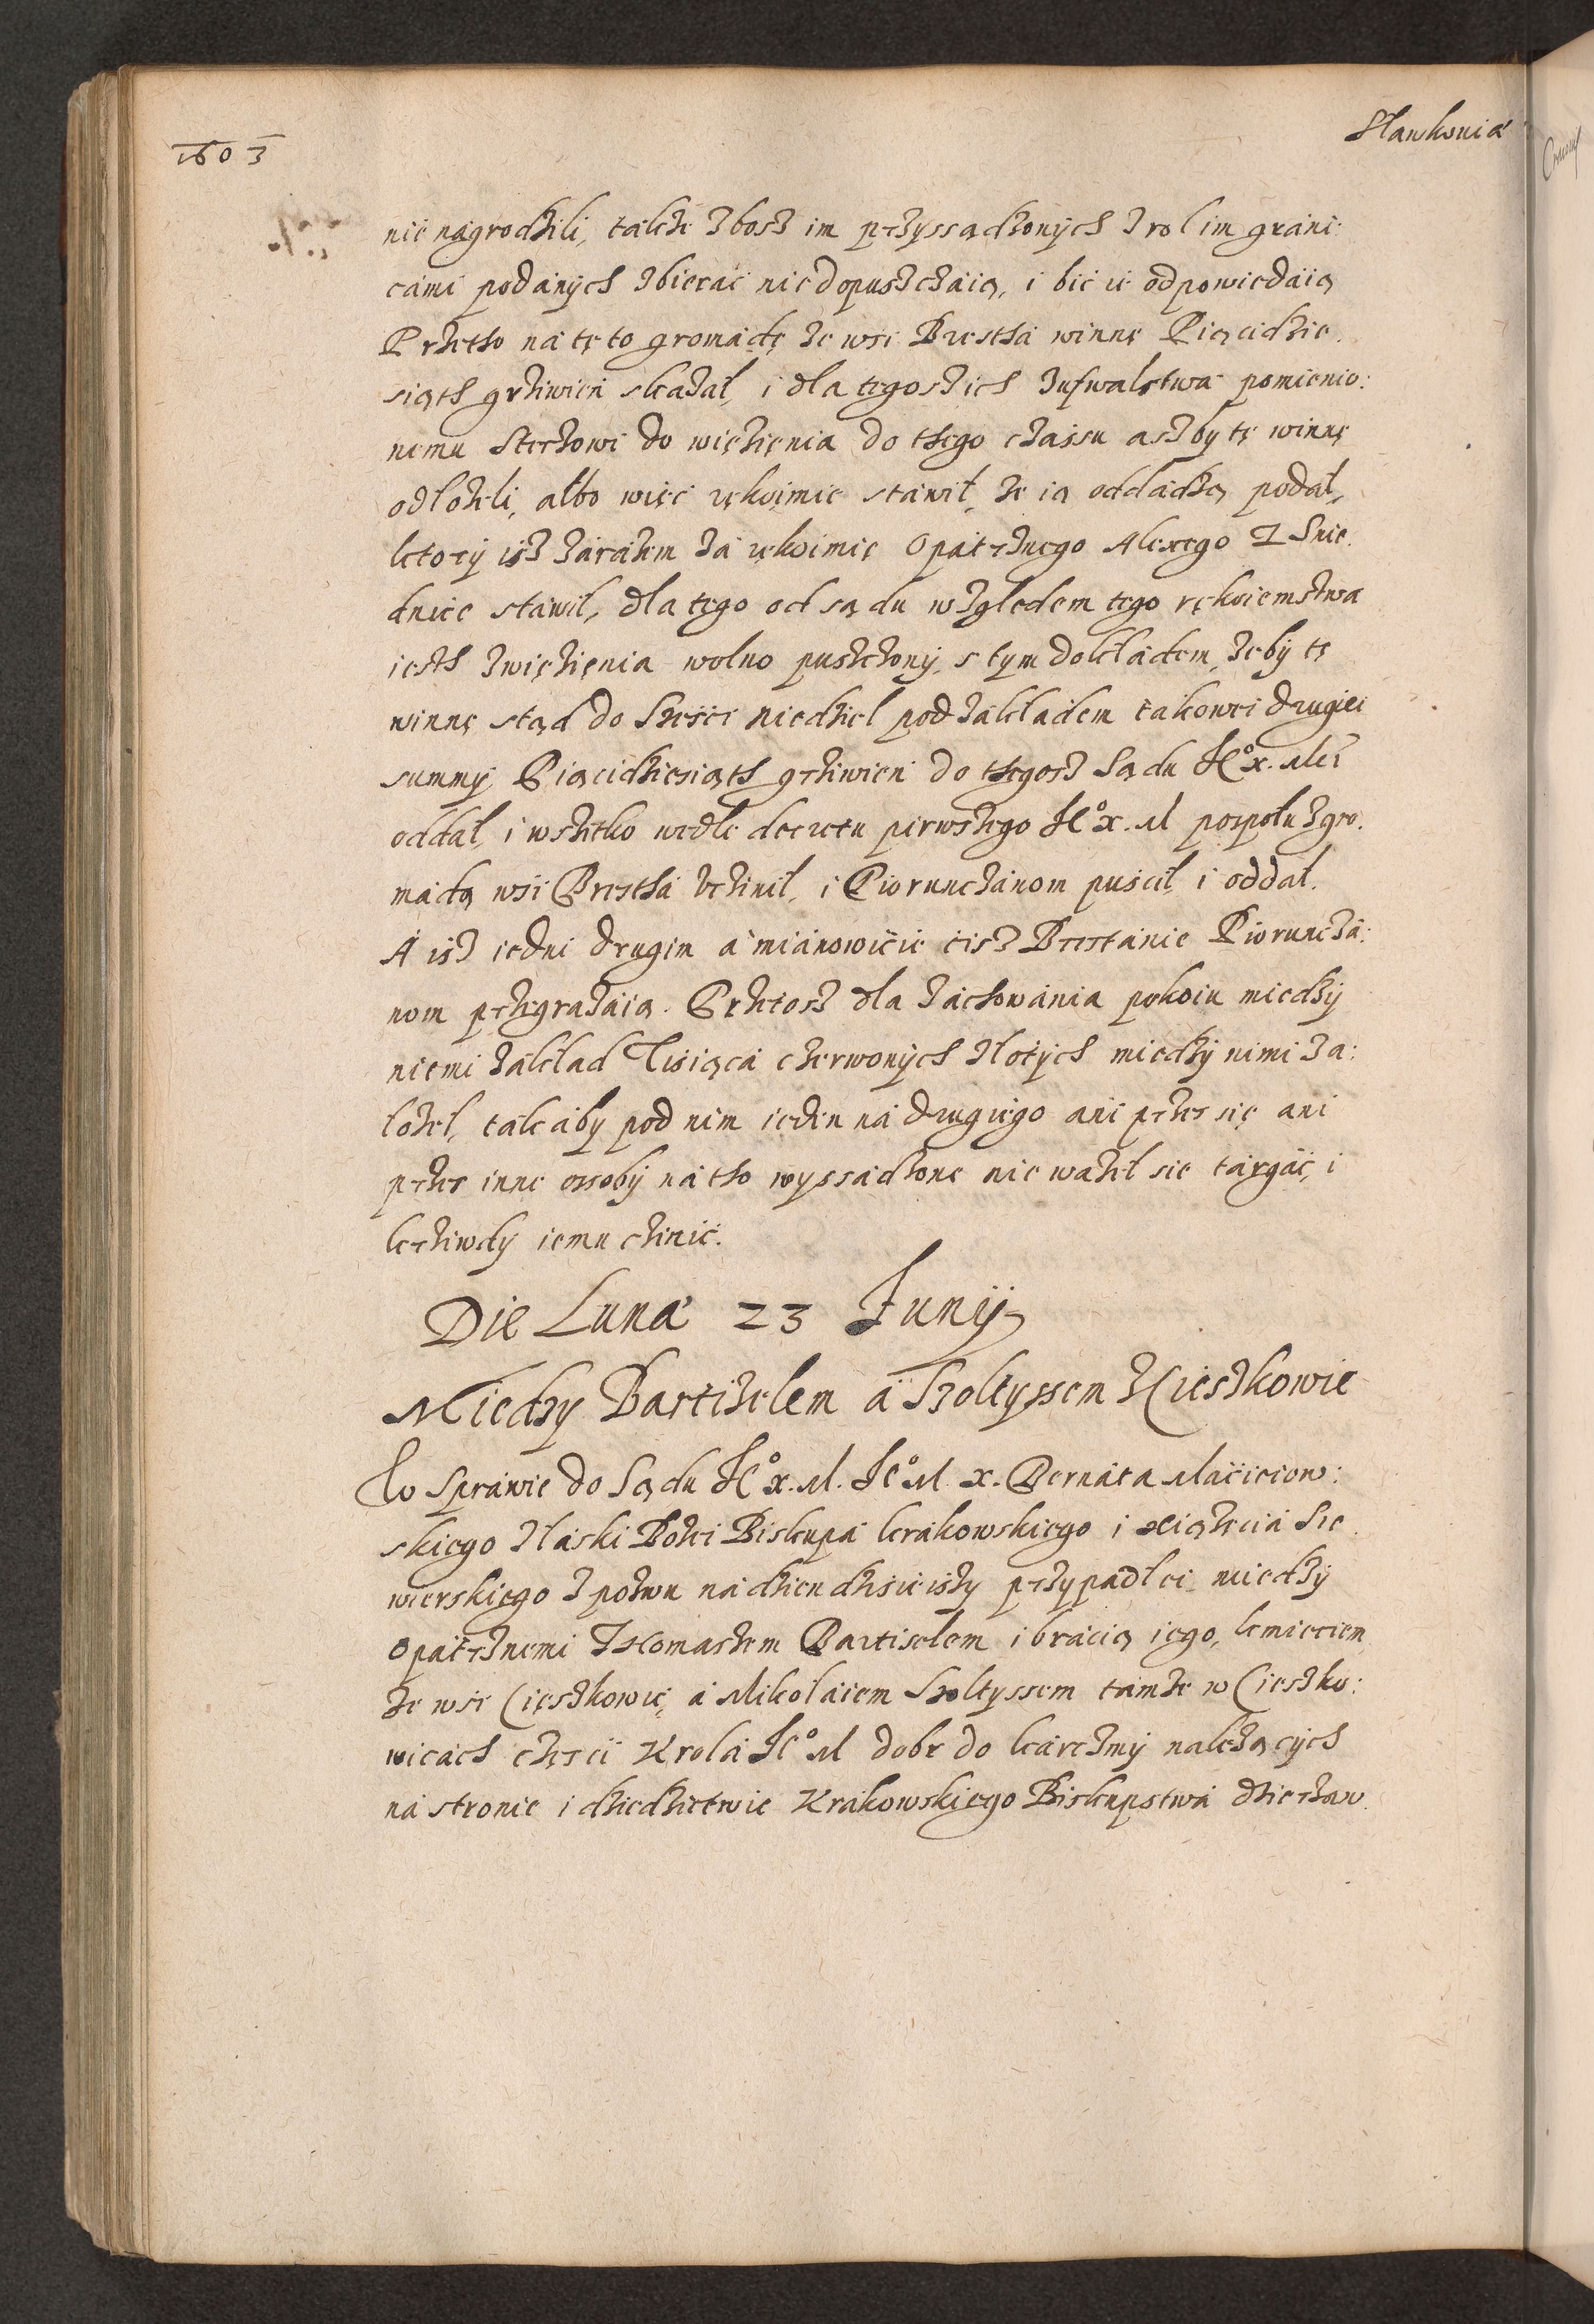 1603
Sławkoviæ
nie nagrodzili, także zbosz im przyssądzonych z rol im grani:
cámi podánych zbierać nie dopuszczáią, i bić ie odpowiedáią
Przetho ná tę to gromádę ze wsi Brestha winnę Piącidzie.
siąth grziwień skazał, i dla tegosz ich zufwalstwá pomienio:
nemu Sterzowi do więzięnia do thego czássu aszby tę winnę
odłożeli, albo więc rękoimie stáwił, że ią oddádzą, podał,
ktory isz zárázem zá rękoimię Opátrznego Alexego Z Snie.
dnice stáwił, dla tego od sądu względem tego rękoiemstwa
iesth zwięzięnia wolno puszczony, s tym dokłádem, żeby tę
winnę stąd do sześci niedziel pod zakładem takowei drugiei
summy Piącidziesiąth grziwień do thegosz Sądu Je⁰ x. Mci
oddał, i wszetko wedle decretu pierwszego Je⁰ x. M pospołu z gro.
mádą wsi Brestha uczinił, i Piorunczánom puścił i oddał.
A isz iedni drugim á miánowićie cisz Brestánie Piorunczá:
nom przegrażáią. Przetosz dla záchowánia pokoiu miedzy
niemi zakład Tisiącá czerwonych złotych miedzy nimi za:
łożeł, tak áby pod nim ieden ná drugiego ani przes się ani
przes inne ossoby ná tho wyssádzone nie ważeł sie tárgáć, i
krziwdy iemu czinić.
Die Lunæ 23 Junij
Miedzy Bartizelem á Szołtyssem z Cieszkowic
W Spráwie do Sądu Je⁰ x. M. Je⁰ M. x. Bernáta Máciciow:
skiego z łáski Bożei Biskupá krákowskiego i xiążęciá Sie.
wierskiego z pozwu ná dzień dzisieiszy przypadłei miedzy
opátrznemi Thomaszem Bartiselem i bráćią iego, kmieciem
ze wsi Cieszkowic, á Mikołáiem Szołtyssem támże w Cieszko:
wicách części Krolá Je⁰ M dobr do kárczmy należących
ná stronie i dziedzictwie Krákowskiego Biskupstwá dzierżaw.